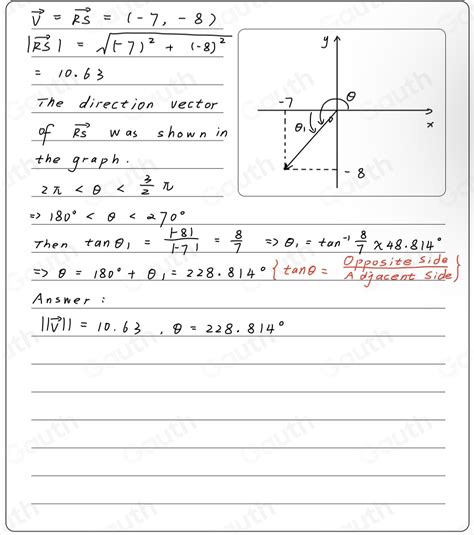 v⃗ = RS⃗ = (-7, -8)
|RS⃗| = √((-7)² + (-8)²)
= 10.63
The direction vector
of RS⃗ was shown in
the graph.
2π < θ < 3/2 π
=> 180° < θ < 270°
Then tanθ₁ = |-8|/|-7| = 8/7 => θ₁ = tan⁻¹ 8/7 × 48.814°
=> θ = 180° + θ₁ = 228.814° {tanθ = Opposite side/Adjacent side}
Answer:
||v⃗|| = 10.63, θ = 228.814°
y
-7
θ
θ₁
o
x
-8
Gauth